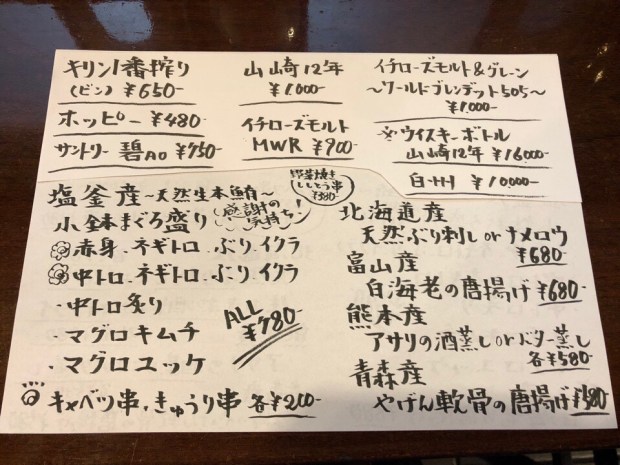 キリン一番搾り
(ビン) ¥650-
ホッピー ¥480-
サントリー 碧Ao ¥750-
山崎12年
¥1000-
イチローズモルト
MWR ¥900
イチローズモルト&グレーン
〜ワールドブレンデット505〜
¥1000-
※ウイスキーボトル
山崎12年 ¥16000
白州 ¥10000-
塩釜産〜天然生本鮪〜
小鉢まぐろ盛り
感謝の
気持ち!
ししとう串
¥380-
赤身、ネギトロ、ぶり、イクラ
中トロ、ネギトロ、ぶり、イクラ
・中トロ炙り
・マグロキムチ
・マグロユッケ
ALL
¥780-
キャベツ串、きゅうり串 各¥200-
北海道産
天然ぶり刺しorナメロウ
¥680-
富山産
白海老の唐揚げ ¥680-
熊本産
アサリの酒蒸しorバター蒸し
各¥580-
青森産
やげん軟骨の唐揚げ